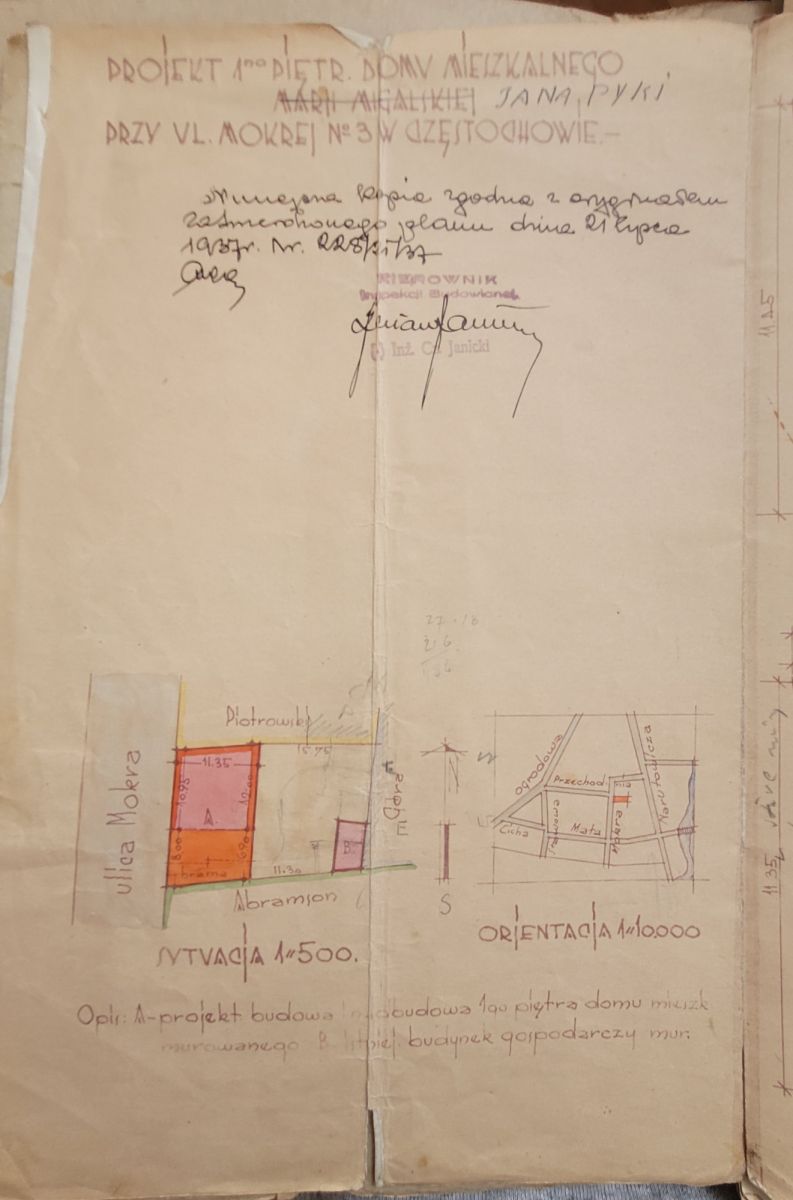 PROJEKT 1no PIĘTR. DOMU MIESZKALNEGO
MARJI MIGALSKIEJ JANA PYKI
PRZY UL. MOKREJ No 3 W CZĘSTOCHOWIE.-
Niniejsza kopia zgodna z oryginałem
zatwierdzonego planu dnia 21 lipca
1937r. Nr. 228/21/37
KIEROWNIK
Inspekcji Budowlanej
(-) Inż. Cz. Janicki
1125
11.35
Piotrowski
15.75
11.35
10.95
12.00
A.
8.00
6.90
brama
11.30
B.
ulica Mokra
Góra
Abramson
N
S
SYTUACJA 1:500.
Ogrodowa
Przechodnia
Narutowicza
Cicha
Mała
Mokra
ORJENTACJA 1:10.000
Opis: A-projekt budowa i nadbudowa 1go piętra domu mieszk
murowanego B. Istniej. budynek gospodarczy mur.